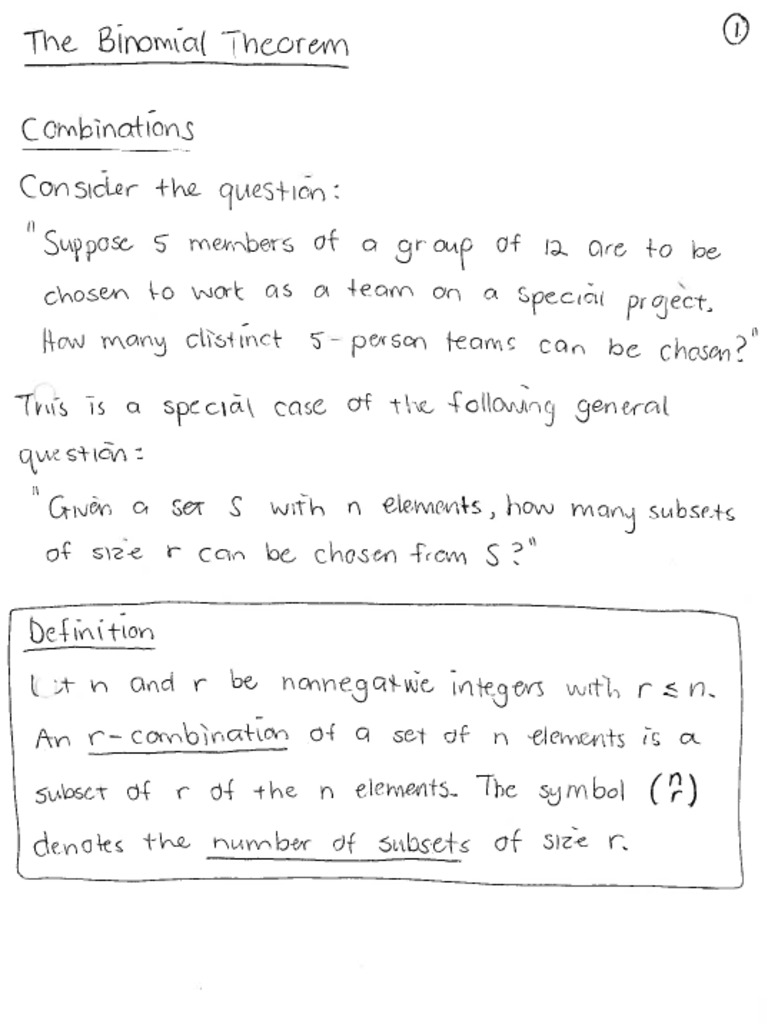 The Binomial Theorem
①
Combinations
Consider the question:
"Suppose 5 members of a group of 12 are to be
chosen to work as a team on a special project.
How many distinct 5-person teams can be chosen?"
This is a special case of the following general
question:
"Given a set S with n elements, how many subsets
of size r can be chosen from S?"
Definition
Let n and r be nonnegative integers with r ≤ n.
An r-combination of a set of n elements is a
subset of r of the n elements. The symbol (n r)
denotes the number of subsets of size r.